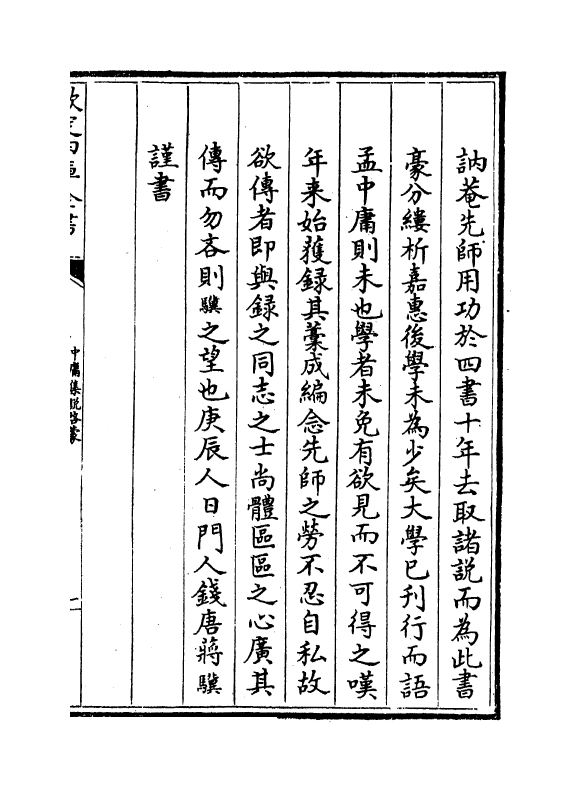 訥菴先師用功於四書十年去取諸說而為此書
豪分縷析嘉惠後學未為少矣大學已刊行而語
孟中庸則未也學者未免有欲見而不可得之嘆
年来始獲録其藁成編念先師之勞不忍自私故
欲傳者即與録之同志之士尚體區區之心廣其
傳而勿吝則驥之望也庚辰人日門人錢唐蔣驥
謹書
欽定四庫全書
中庸集說啓蒙
二